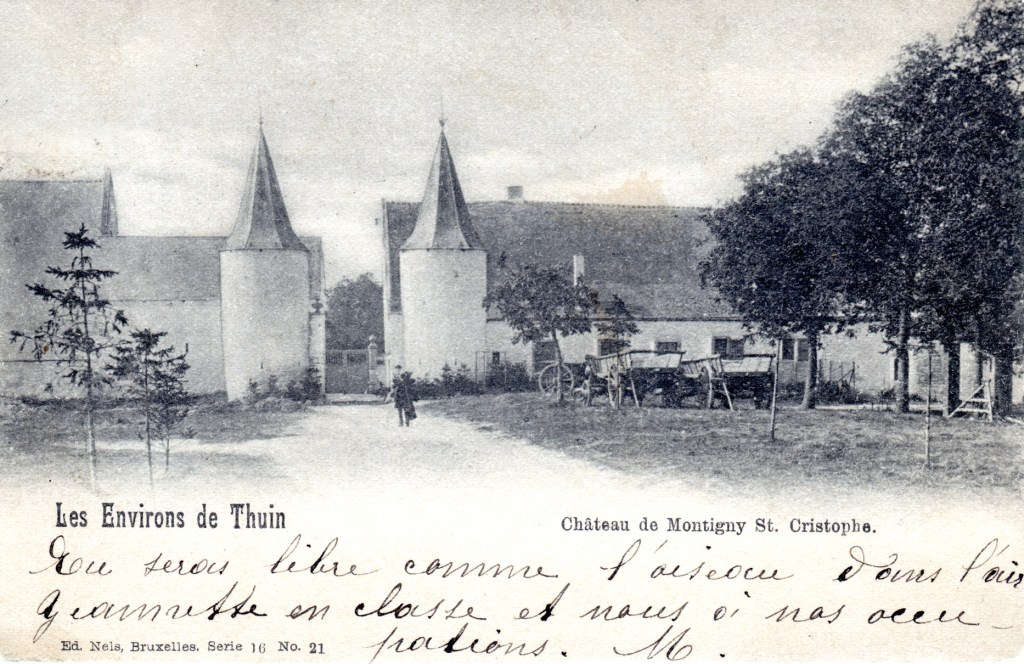 Les Environs de Thuin
Château de Montigny St. Cristophe.
Tu seras libre comme l'oiseau dans l'air
Jeannette en classe et nous à nos occu-
pations. M.
Ed. Nels, Bruxelles. Serie 16 No. 21